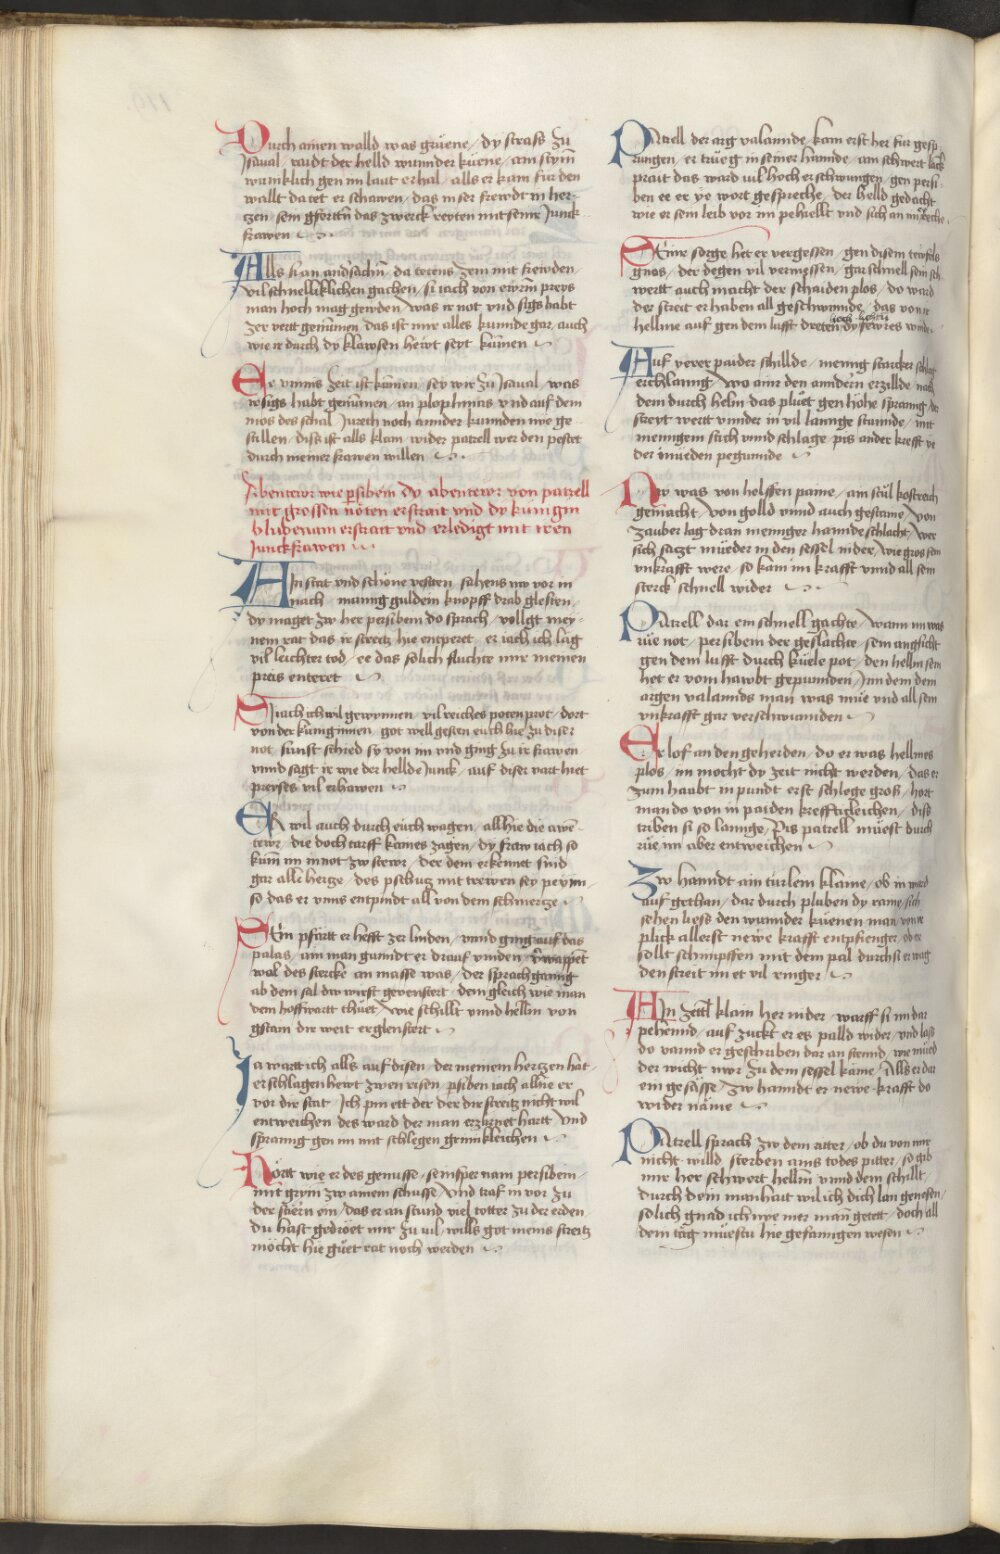 Durch ainen walld was gruene / dy strass zu
Isaual / raidt der helld wunnder kuene / am stym
wunklich gen im laut erhal / alls er kam fur den
wallt da tet er schawen / das in ser frewdt in her-
tzen / sein gfertn das zwerck reyten mit seinr Junck-
frawen
Alls si an andsachn / da tetens zem mit frewden /
vil schnelliklichen gachen / si iach von ewrm preys
man hoch mag gewden / was ir not vnd sigs habt
zer vertt genumen / das ist mir alles kunnde gar / auch
wie ir durch dy klawsen hewt seyt kumen
Er vnnns zeit ist kumen / sey wir zu Isaual / was
ir sigs habt genumen / an plophinas vnd auf dem
mos des schal / Jurech noch annder kunnden nye ge-
stillen / diss ist alls klain / wider patrell wer den pestet
durch meiner frawen willen
Abentewr wie persibein dy abentewr von patrell
mit grossen nöten erstrait vnd dy kunigin
plubenam erstrait vnd erledigt mit iren
Junckfrawen
Ain stat vnd schöne vesten / sahens nw vor in
nach / manng guldein knopff drab glesten /
dy maget zw her persibein do sprach / vollgt mey-
nem rat das ir streitz hie enperet / er iach ich lag
vil leichter tod / ee das solich fluchte mir meinen
preis enteret
Si iach ich wil gewynnen / vil reiches poten prot / dort
von der kuniginnen / got well gesten euch hie zu diser
not / sunst schied sy von im vnd ging zu ir frawen
vnnd sagt ir wie der hellde Junck / auf diser vart hiet
preyses vil erbawen
Er wil auch durch euch wagen / allhie die awe-
tewr / die doch tarff kaines zagen / dy fraw iach so
kum im in not zw stewr / der dem erkennet sind
gar alle hertze / des pschutz mit trewen sey pey im /
so das er vnns entpindt all von dem schmertze
Sein pfärtt er hefft zer linden / vnnd ging auf das
palas / ain man gunndt er drauf vinden / v̈rwappet
wol des stercke an masse was / der sprach ganng
ab dem sal dw wirst gevenstert / dem gleich wie man
dem hoffwartt thuet / wie schillt vnnd hellm von
gstain dir weit erglenstert
Ia wartt ich alls auf disen / der meinem hertzen hat /
erschlagen hewt zwen risen / psiben iach allhie er
vor dir stat / Ich pin ett der der dir streitz nicht wil
entweichen / des ward der man erzurnet hartt / vnd
spranng gen im mit schlegen grimkleichen
Hörtt wie er des genusse / sein sper nam persibein /
mit grym zw ainem schusse / vnd traf in vor zu
der stiern ein / das er an stund viel totter zu der erden /
du hast gedröet mir zu vil / wills got meins streitz
möcht hie guet rat noch werden
Patrell der arg valannde / kam erst her fur gesp-
rungen / er trueg in seiner hannde / ain schwert lack
prait das ward vil hoch erschwungen / gen persi-
ben ee er ye wort gespreche / der helld gedacht
wie er sein leib vor im pehiellt vnd sich an im reche
Seine sorge het er vergessen / gen disem tewfels
gnos / der degen vil vermessen / gar schnell sein sch-
wertt auch macht der schaiden plos / do ward
der streit erhaben all geschwinnde / das von ir
hellme auf gen dem lufft dreten dy fewres winde
Auf yerer paider schillde / menng starcker schlag
erchlanng / wo ainr den anndern erzillde / nach
dem durch helm das pluet gen höhe spranng / der
streyt wertt vnnder in vil lannge stunnde / mit
mennigem stich vnnd schlage / pis ander krefft ye-
der mueden pegunnde
Nw was von helffen paine / ain stul kostreich
gemacht / von golld vnnd auch gestaine / von
zauber lag dran menniger hannde schlacht / wer
sich satzt mueder in den sessel nider / wie gros sein
vnkrafft were / so kam im krafft vnnd all sein
sterck schnell wider
Patrell dar ein schnell gachte / wann im was
rue not / persibein der geslachte / sein angsicht
gen dem lufft durch kuele pot / den hellm sein
het er vom hawbt gepunnden / Inn dem dem
argen valannds man was mue vnd all sein
vnkrafft gar verschwunnden
Er lof an den geherden / do er was hellmes
plos / im mocht dy zeit nicht werden / das er
zum haubt in pundt erst schlege gros / hört
man do von in paiden krefftigleichen / diss
triben si so lannge / Pis patrell muest durch
rue im aber entweichen
Zw hanndt ain turlein klaine / ob in ward
auf gethan / dar durch pluben dy raine / sich
sehen liess den wunnder kuenen man / von ir
plick allerst newe krafft entpfienger / ob er
sollt schimpffen mit dem pal durchst er wag
den streit im et vil ringer
Ain zettl klain her nider / warff si im dar
pehennd / auf zuckt er es palld wider / vnd lass
do vannd er geschriben dar an stennd / wie mued
der wicht nwr zu dem sessel kame / Alls er dar
ein gesässe / zw hanndt er newe krafft do
wider näme
Patrell sprach zw dem ritter / ob du von mir
nicht willd / sterben ains todes pitter / so gib
mir her schwert hellm vnnd dein schillt /
durch dein manhait wil ich dich lan genesen /
solich gnad ich nye mer man getett / doch all
dein täg muestu hie gefanngen wesen